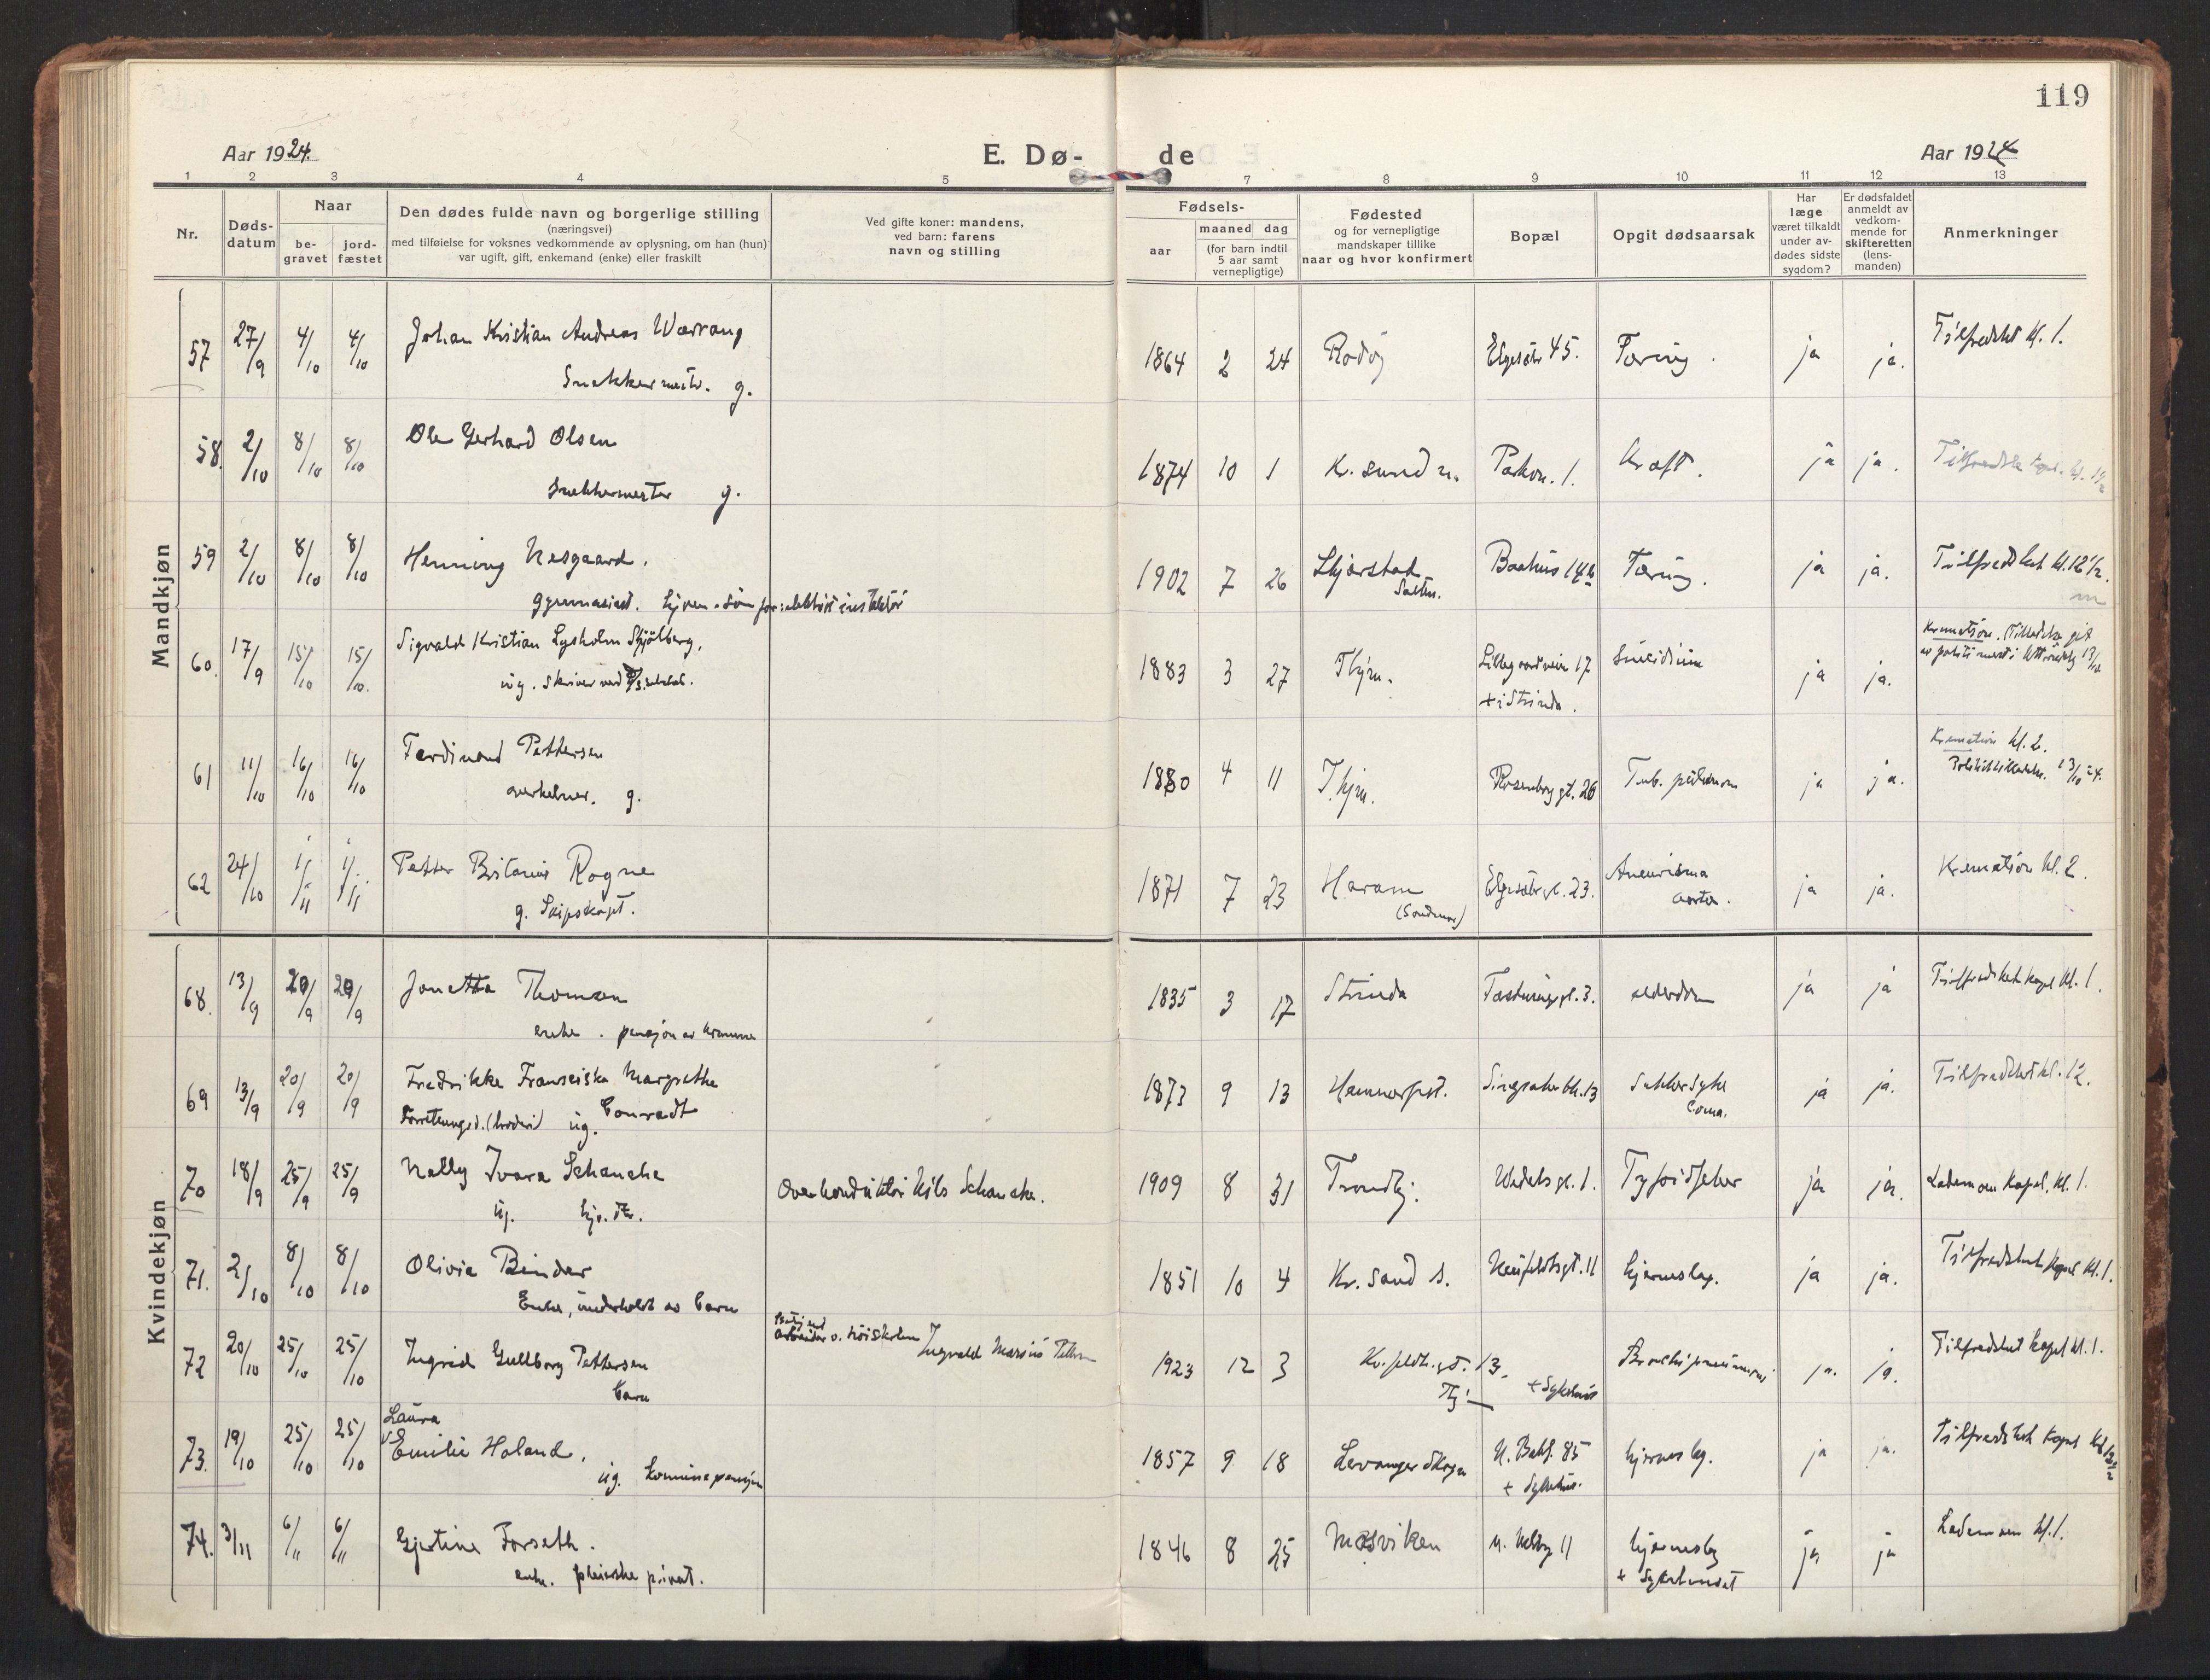 119
Aar 1924.
E. Dø-
de
Aar 1924
1 2 3 4 5 7 8 9 10 11 12 13
Nr.
Døds-
datum
Naar
be-
gravet
jord-
fæstet
Den dødes fulde navn og borgerlige stilling
(næringsvei)
med tilføielse for voksnes vedkommende av oplysning, om han (hun)
var ugift, gift, enkemand (enke) eller fraskilt
Ved gifte koner: mandens,
ved barn: farens
navn og stilling
Fødsels-
aar
maaned dag
(for barn indtil
5 aar samt
vernepligtige)
Fødested
og for vernepligtige
mandskaper tillike
naar og hvor konfirmert
Bopæl
Opgit dødsaarsak
Har
læge
været tilkaldt
under av-
dødes sidste
sygdom?
Er dødsfaldet
anmeldt av
vedkom-
mende for
skifteretten
(lens-
manden)
Anmerkninger
Mandkjøn
57 27/9 4/10 4/10 Johan Kristian Andreas Wærrang 1864 2 24 Rødøy Elgesætr 45. Tæring. ja ja. Tilfredshet kl. 1.
Snekkermestr. g.
58. 2/10 8/10 8/10 Ole Gerhard Olsen 1874 10 1 Kr. sund n. 1. Kræft. ja ja. kl. 1 1/2
Snekkermester g.
59 2/10 8/10 8/10 Henning Nesgaard. 1902 7 26 Skjerstad Baahus 14b Tæring. ja ja. Tilfredshet kl. 12 1/2.
Salten.
gymnasiast.
60. 17/9 15/10 15/10. Sigvald Kristian Lysholm Skjølberg. 1883 3 27 Thjm. Lillegaardsvein 17 Suicidium ja ja. Kremation.
ug. skriver ved + i Strinda.
61 11/10 16/10 16/10 Ferdinand Pettersen 1880 4 11 T.hjm. Rosenborg gt. 26 Tub. pulmon ja ja. Kremation kl. 2.
overkelner. g. 13/10 24.
62 24/10 1/11 1/11 Petter Rogne 1871 7 23 Haram Elgesætr gt. 23. Aneurisma ja ja. Kremation kl. 2.
g. Skipskapt. (Søndmør) aorta.
Kvindekjøn
68. 13/9 20/9 20/9 Jonetta Thomsen 1835 3 17 Strinda gt. 3. alderdom ja ja Tilfredshet kapel kl. 1.
enke. pensjon av kommune
69 13/9 20/9 20/9 Fredrikke Franseiska Margrethe 1873 9 13 Hammerfest. Singsaker bk. 13 Sukkersyke ja ja. Tilfredshet kl. 12.
(broderi) ug. Conradt Coma.
70 18/9 25/9 25/9 Nelly Ivara Schanche Overkonduktør Nils Schanche. 1909 8 31 Trondhj. Wedels gt. 1. Tyfoidfeber ja ja. Lademoen Kapel, kl. 1.
ug. hjv. dtr.
71. 2/10 8/10 8/10 Olivia Binder 1851 10 4 Kr. sand s. Neufeldtsgt. 11 hjerneslag. ja ja. Tilfredshet kapel kl. 1.
Enke, underholdt av barn
72 20/10 25/10 25/10 Ingrid Gullborg Pettersen arbeider v. høiskolen Ingvald Marius 1923 12 3 13. Bronchipneumoni ja. ja. Tilfredshet kapel kl. 1.
barn Thj. + Sykehus
73. 19/10 25/10 25/10 Laura
Emilie Holand. 1857 9 18 Levanger Skogn N. Bakl. 85 hjernesl. ja ja. Tilfredshet kapel kl. 12 1/2
ug. + Sykehus.
74. 3/11 6/11 6/11 Gjertine Forseth. 1846 8 25 Mosviken 11 hjernesl. ja ja Lademoen kl. 1.
enke. pleierske privat. + Sykehuset